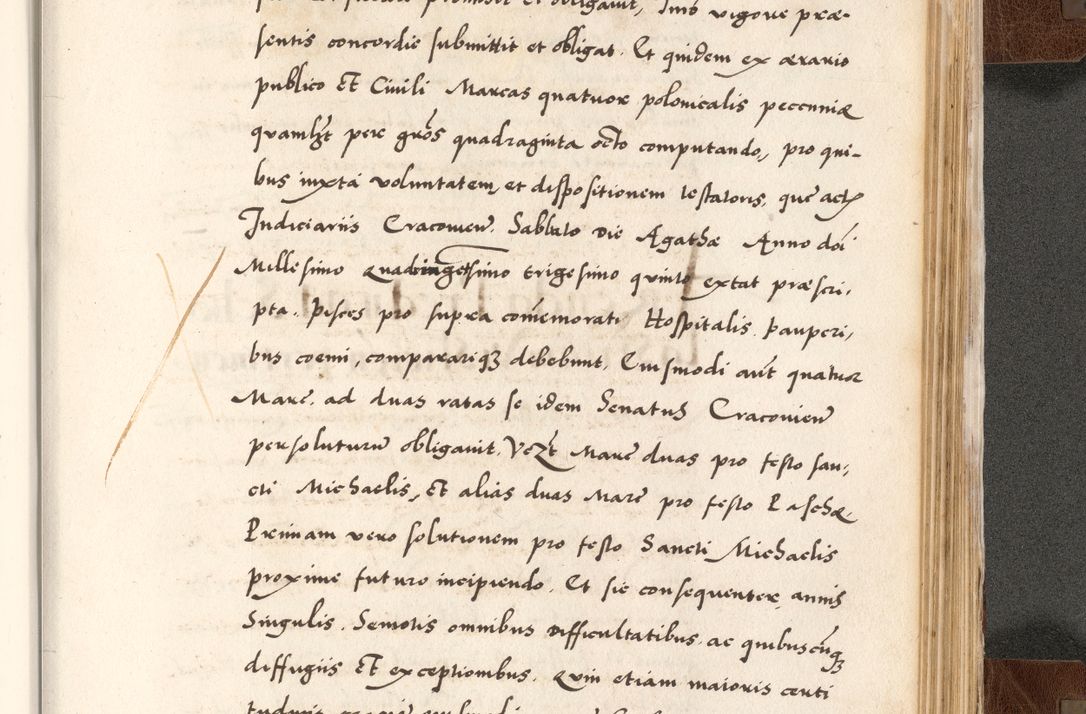 promisit et obligauit, Imo vigore præ-
sentis concordie submittit et obligat. Et quidem ex ærario
publico Et Ciuili Marcas quatuor polonicalis peccuniæ
quamlꝫt per grõs quadraginta octo computando, pro qui-
bus iuxta voluntatem, et dispositionem testatoris, que actꝭ
Judiciariis Cracouieñ. Sabbato die Agathæ Anno doı̃
Millesimo Quadringetesimo trigesimo quinto extat præscri,
pta. Pisces pro supra com̃emorati Hospitalis Pauperi,
bus coemi, comparariqꝫ debebunt, Cuiusmodi aut̃ quatuor
Marc̃. ad duas ratas se idem Senatus Cracouieñ
persoluturũ obligauit, Vꝫꝫt Marc̃ duas pro festo san,
cti Michaelis, Et alias duas Marc̃ pro festo Paschæ.
Primam vero solutionem pro festo Sancti Michaelis
proxime futuro incipiendo. Et sic consequenter, annis
Singulis. Semotis omnibus difficultatibus. ac quibuscũqꝫ
diffugiis Et exceptionibus. Quin etiam maioris certi